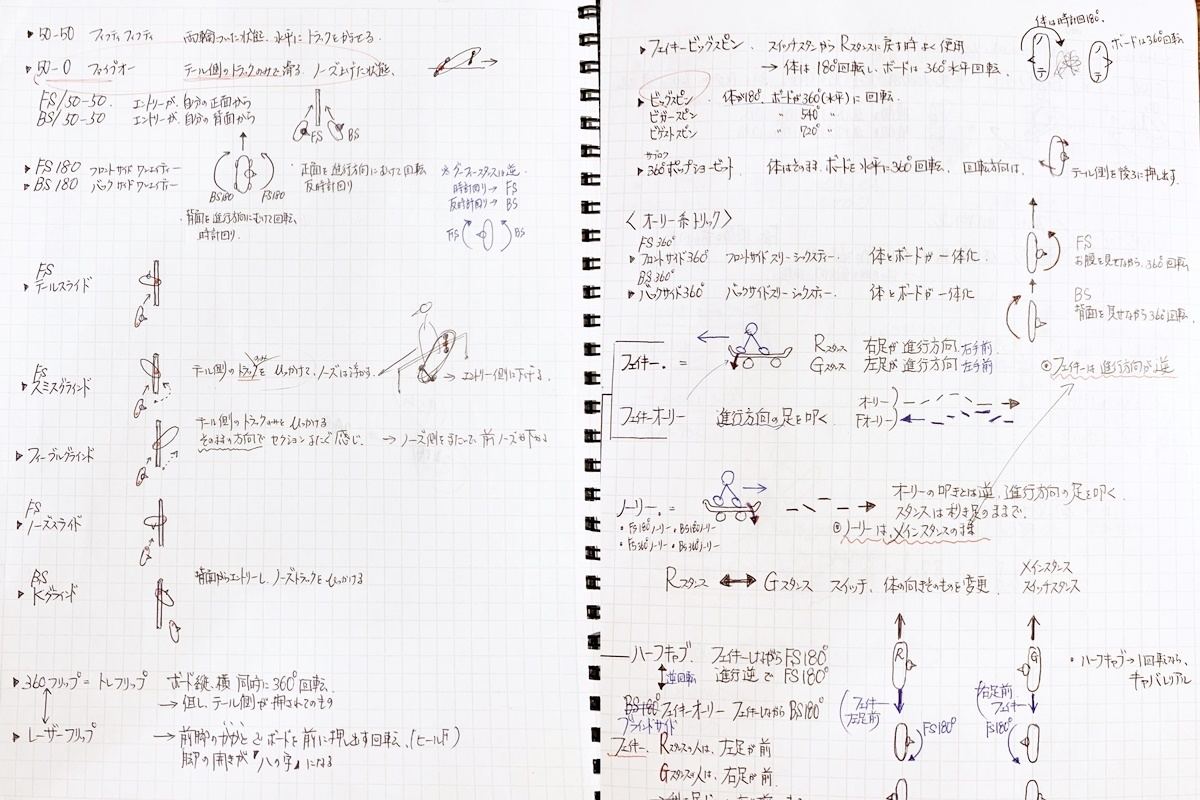 ▸50-50 フィフティフィフティ 両輪ついた状態、水平にトラックをかけてる。
▸50-0 ファイブオー テール側のトラックのみで滑る。ノーズ上げた状態、
FS/50-50. エントリーが、自分の正面から
BS/50-50 エントリーが、自分の背面から
FS BS
▸FS180 フロントサイドワンエイティー
▸BS180 バックサイドワンエイティー
BS180 FS180
・正面を進行方向にむけて回転
反時計回り
※グーフースタンスは逆
時計回り→ FS
反時計回り→ BS
FS BS
・背面を進行方向にむけて回転、
時計回り.
FS
▸テールスライド
FS
▸スミスグラインド テール側のトラックを ひっかけて、ノーズは浮かす。
→ エントリー側に下げる.
▸フィーブルグラインド テール側のトラックのみをひっかける
そのままの方向でセクションまたぐ感じ. → ノーズ側をまたいで、前ノーズが下がる
FS
▸ノーズスライド
BS
▸Kグラインド 背面からエントリーし、ノーズトラックをひっかける
▸360フリップ = トレフリップ ボード縦、横 同時に360°回転、
→ 但し、テール側が押されてのもの
▸レーザーフリップ → 前脚のかかとでボードを前に押し出す回転、(ヒールF)
脚の開きが『ハの字』になる
体は時計回180°.
▸フェイキービッグスピン. スイッチスタンスから Rスタンスに戻す時よく使用
→ 体は180°回転し、ボードは360°水平回転.
ノ テ
ノ テ
ボードは360°回転
▸ビッグスピン. 体が180°、ボードが360°(水平)に回転.
ビガースピン 〃 540° 〃
ビゲストスピン 〃 720° 〃
▸360°ポップショービット 体はそのまま.ボードを水平に360°回転、 回転方向は、
テール側を後ろに押し出す.
〈オーリー系トリック〉
FS 360°
▸フロントサイド360° フロントサイドスリーシックスティー. 体とボードが一体化.
BS 360°
▸バックサイド360° バックサイドスリーシックスティー. 体とボードが一体化
FS
お腹を見せながら、360°回転
BS
背面を見せながら360°回転.
フェイキー. = Rスタンス 右足が進行方向 右手前.
Gスタンス 左足が進行方向 左手前
◎フェイキーは進行方向が逆
フェイキーオーリー 進行方向の足を叩く. オーリー
Fオーリー
ノーリー. = オーリーの叩きとは逆、進行方向の足を叩く.
スタンスは利き足のままで.
◎ノーリーは、メインスタンスのまま
・FS180°ノーリー ・BS180°ノーリー
・FS360°ノーリー ・BS360°ノーリー
Rスタンス ↔ Gスタンス スイッチ、体の向きそのものを変更.
メインスタンス
スイッチスタンス
ハーフキャブ. フェイキーしながらFS180°
逆回転 進行逆で FS180°
BS180° フェイキーオーリー フェイキーしながらBS180°
ブラインドサイド
R G
・ハーフキャブ→1回転なら、
キャバレリアル
フェイキー
左足前
FS180°
右足前
フェイキー
FS180°
フェイキー. Rスタンスの人は、左足が前
Gスタンスの人は、右足が前